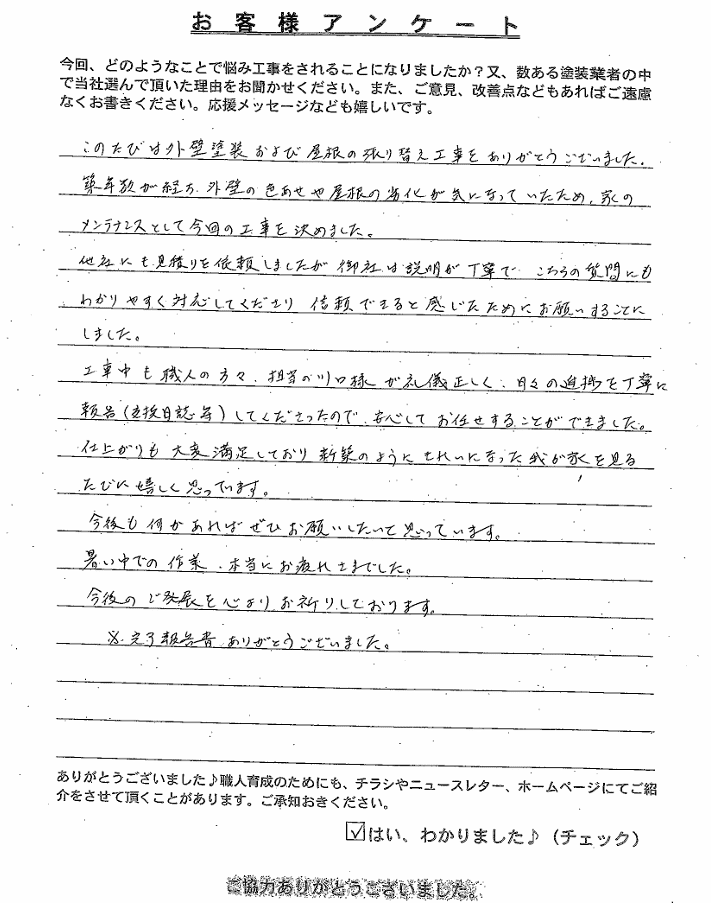 お客様アンケート
今回、どのようなことで悩み工事をされることになりましたか？又、数ある塗装業者の中
で当社選んで頂いた理由をお聞かせください。また、ご意見、改善点などもあればご遠慮
なくお書きください。応援メッセージなども嬉しいです。
このたびは外壁塗装および屋根の張り替え工事をありがとうございました。
築年数が経ち、外壁の色あせや屋根の劣化が気になっていたため、家の
メンテナンスとして今回の工事を決めました。
他社にも見積りを依頼しましたが御社は説明が丁寧で、こちらの質問にも
わかりやすく対応してくださり信頼できると感じたためにお願いすることに
しました。
工事中も職人の方々、担当の川口様が礼儀正しく、日々の進捗を丁寧に
報告(交換日誌等)してくださったので、安心してお任せすることができました。
仕上がりも大変満足しており新築のようにきれいになった我が家を見る
たびに嬉しく思っています。
今後も何かあればぜひお願いしたいと思っています。
暑い中での作業、本当にお疲れさまでした。
今後のご発展を心よりお祈りしております。
※完了報告書、ありがとうございました。
ありがとうございました♪職人育成のためにも、チラシやニュースレター、ホームページにてご紹
介をさせて頂くことがあります。ご承知おきください。
☑はい、わかりました♪（チェック）
ご協力ありがとうございました。